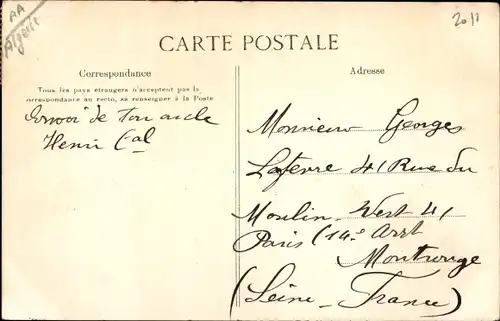 AA
Algérie
20 11
CARTE POSTALE
Correspondance
Tous les pays étrangers n'acceptent pas la
correspondance au recto, se renseigner à la Poste
Envoi de ton oncle
Henri Cal
Adresse
Monsieur Georges
Lafevre 41 Rue du
Moulin - Vert 41
Paris (14e Arrt
Montrouge
(Seine - France)